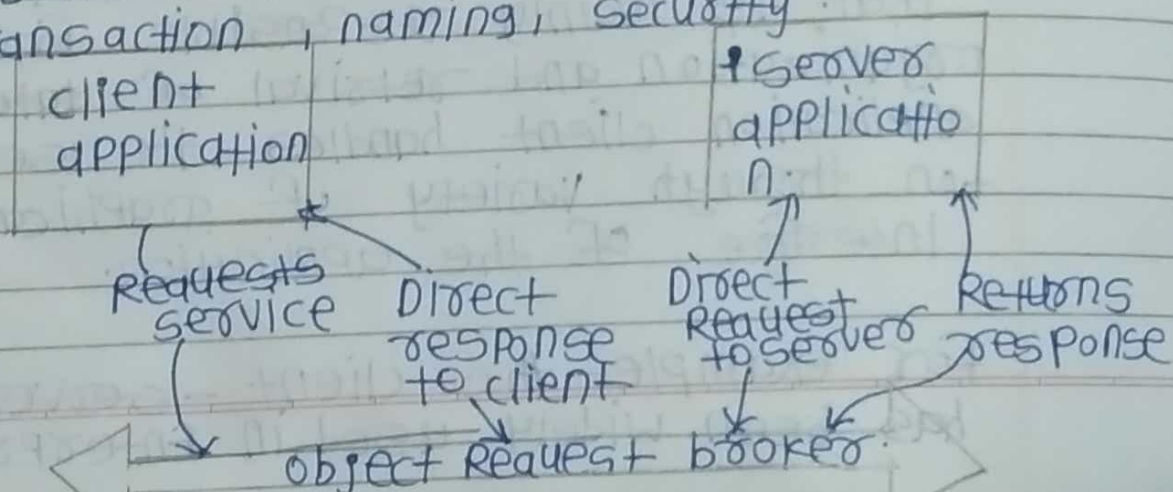 ansaction, naming, security
client
application
server
applicatio
n.
Requests
service
Direct
response
to client
Direct
Request
to server
Returns
response
object Request broker.